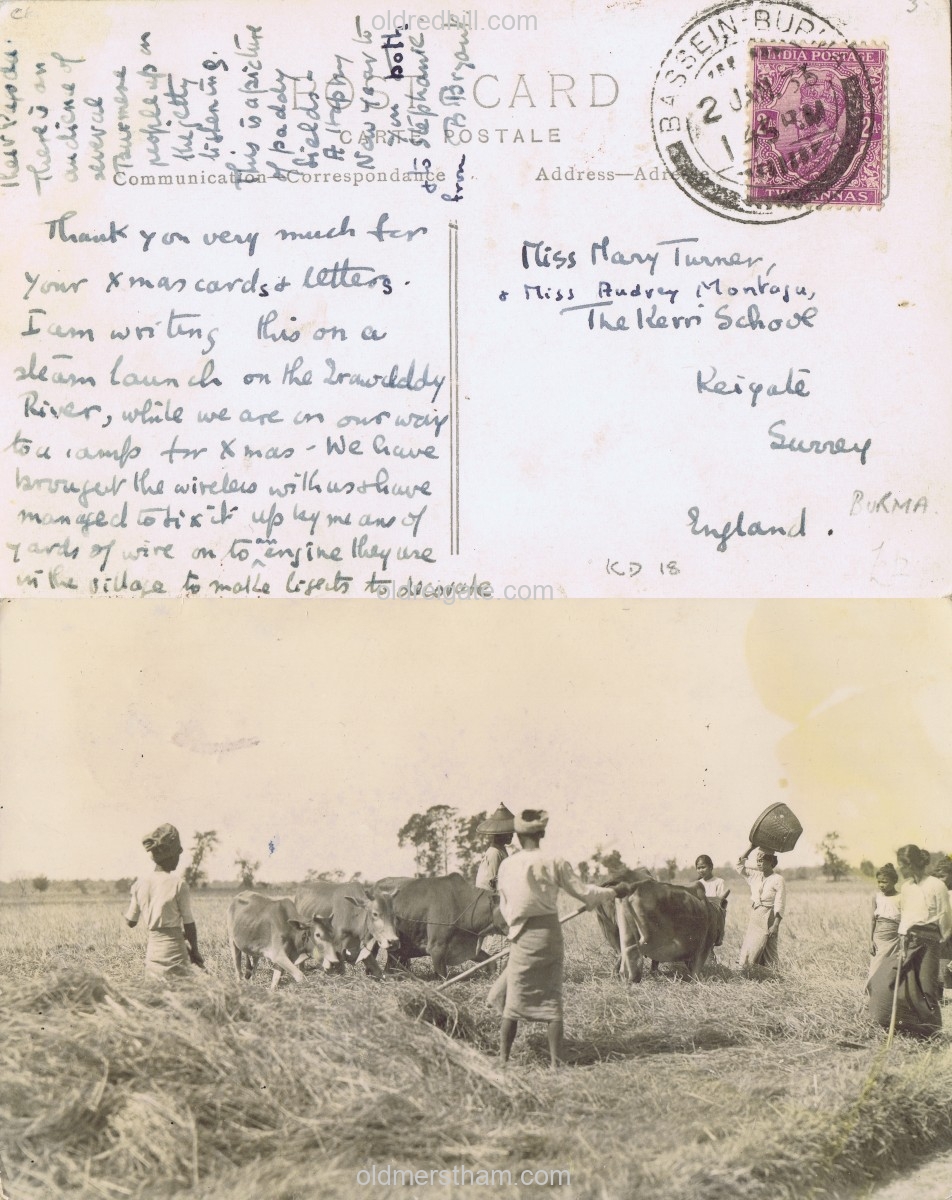 oldredhill.com
POST CARD
CARTE POSTALE
Communication—Correspondance
Address—Adresse
BASSEIN-BURMA
2 JAN 36
INDIA POSTAGE
2As
TWO ANNAS
Thank you very much for
your Xmas cards & letters.
I am writing this on a
steam launch on the Irawdddy
River, while we are on our way
to a camp for Xmas - We have
brought the wireless with us & have
managed to fix it up by means of
yards of wire on to an engine they use
in the village to make lights to decorate
their
There is an
audience of
several
Burmese
people up in
the jetty
listening.
This is a picture
of paddy
fields.
A Happy
New Year to
you both.
& to Stephanie
from
Miss Mary Turner,
& Miss Audrey Montagu,
The Kerri School
Reigate
Surrey
England.
BURMA.
KD 18
oldreigate.com
oldmerstham.com